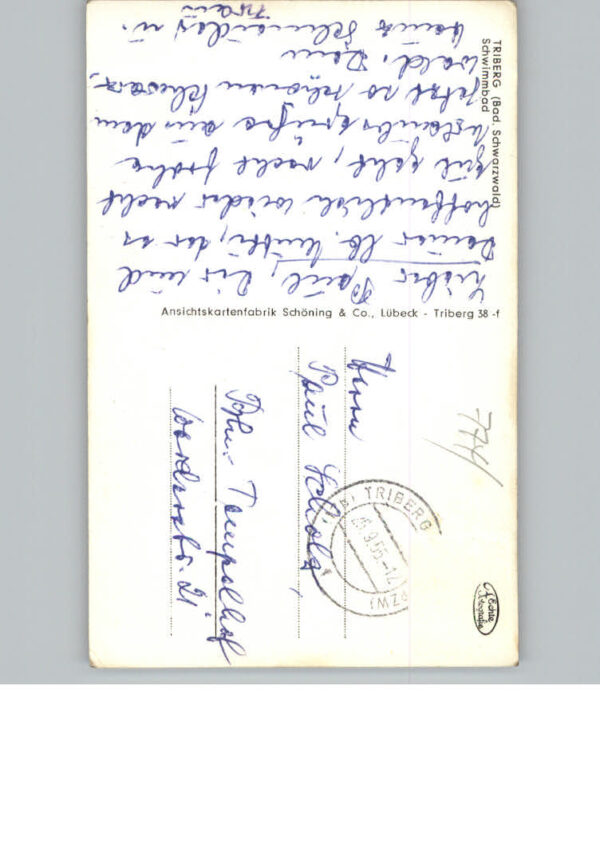 TRIBERG (Bad. Schwarzwald)
Schwimmbad
Lieber Paul, Dir und
Deiner lb. Mutti, der es
hoffentlich wieder recht
gut geht, recht frohe
Urlaubsgrüße aus dem
jetzt so schönen Schwarz-
wald. Dein
u.
Frau
Ansichtskartenfabrik Schöning & Co., Lübeck - Triberg 38 -f
Herrn
Paul Scholz
Bln.- Tempelhof
21
774
TRIBERG
Echte
Fotografie